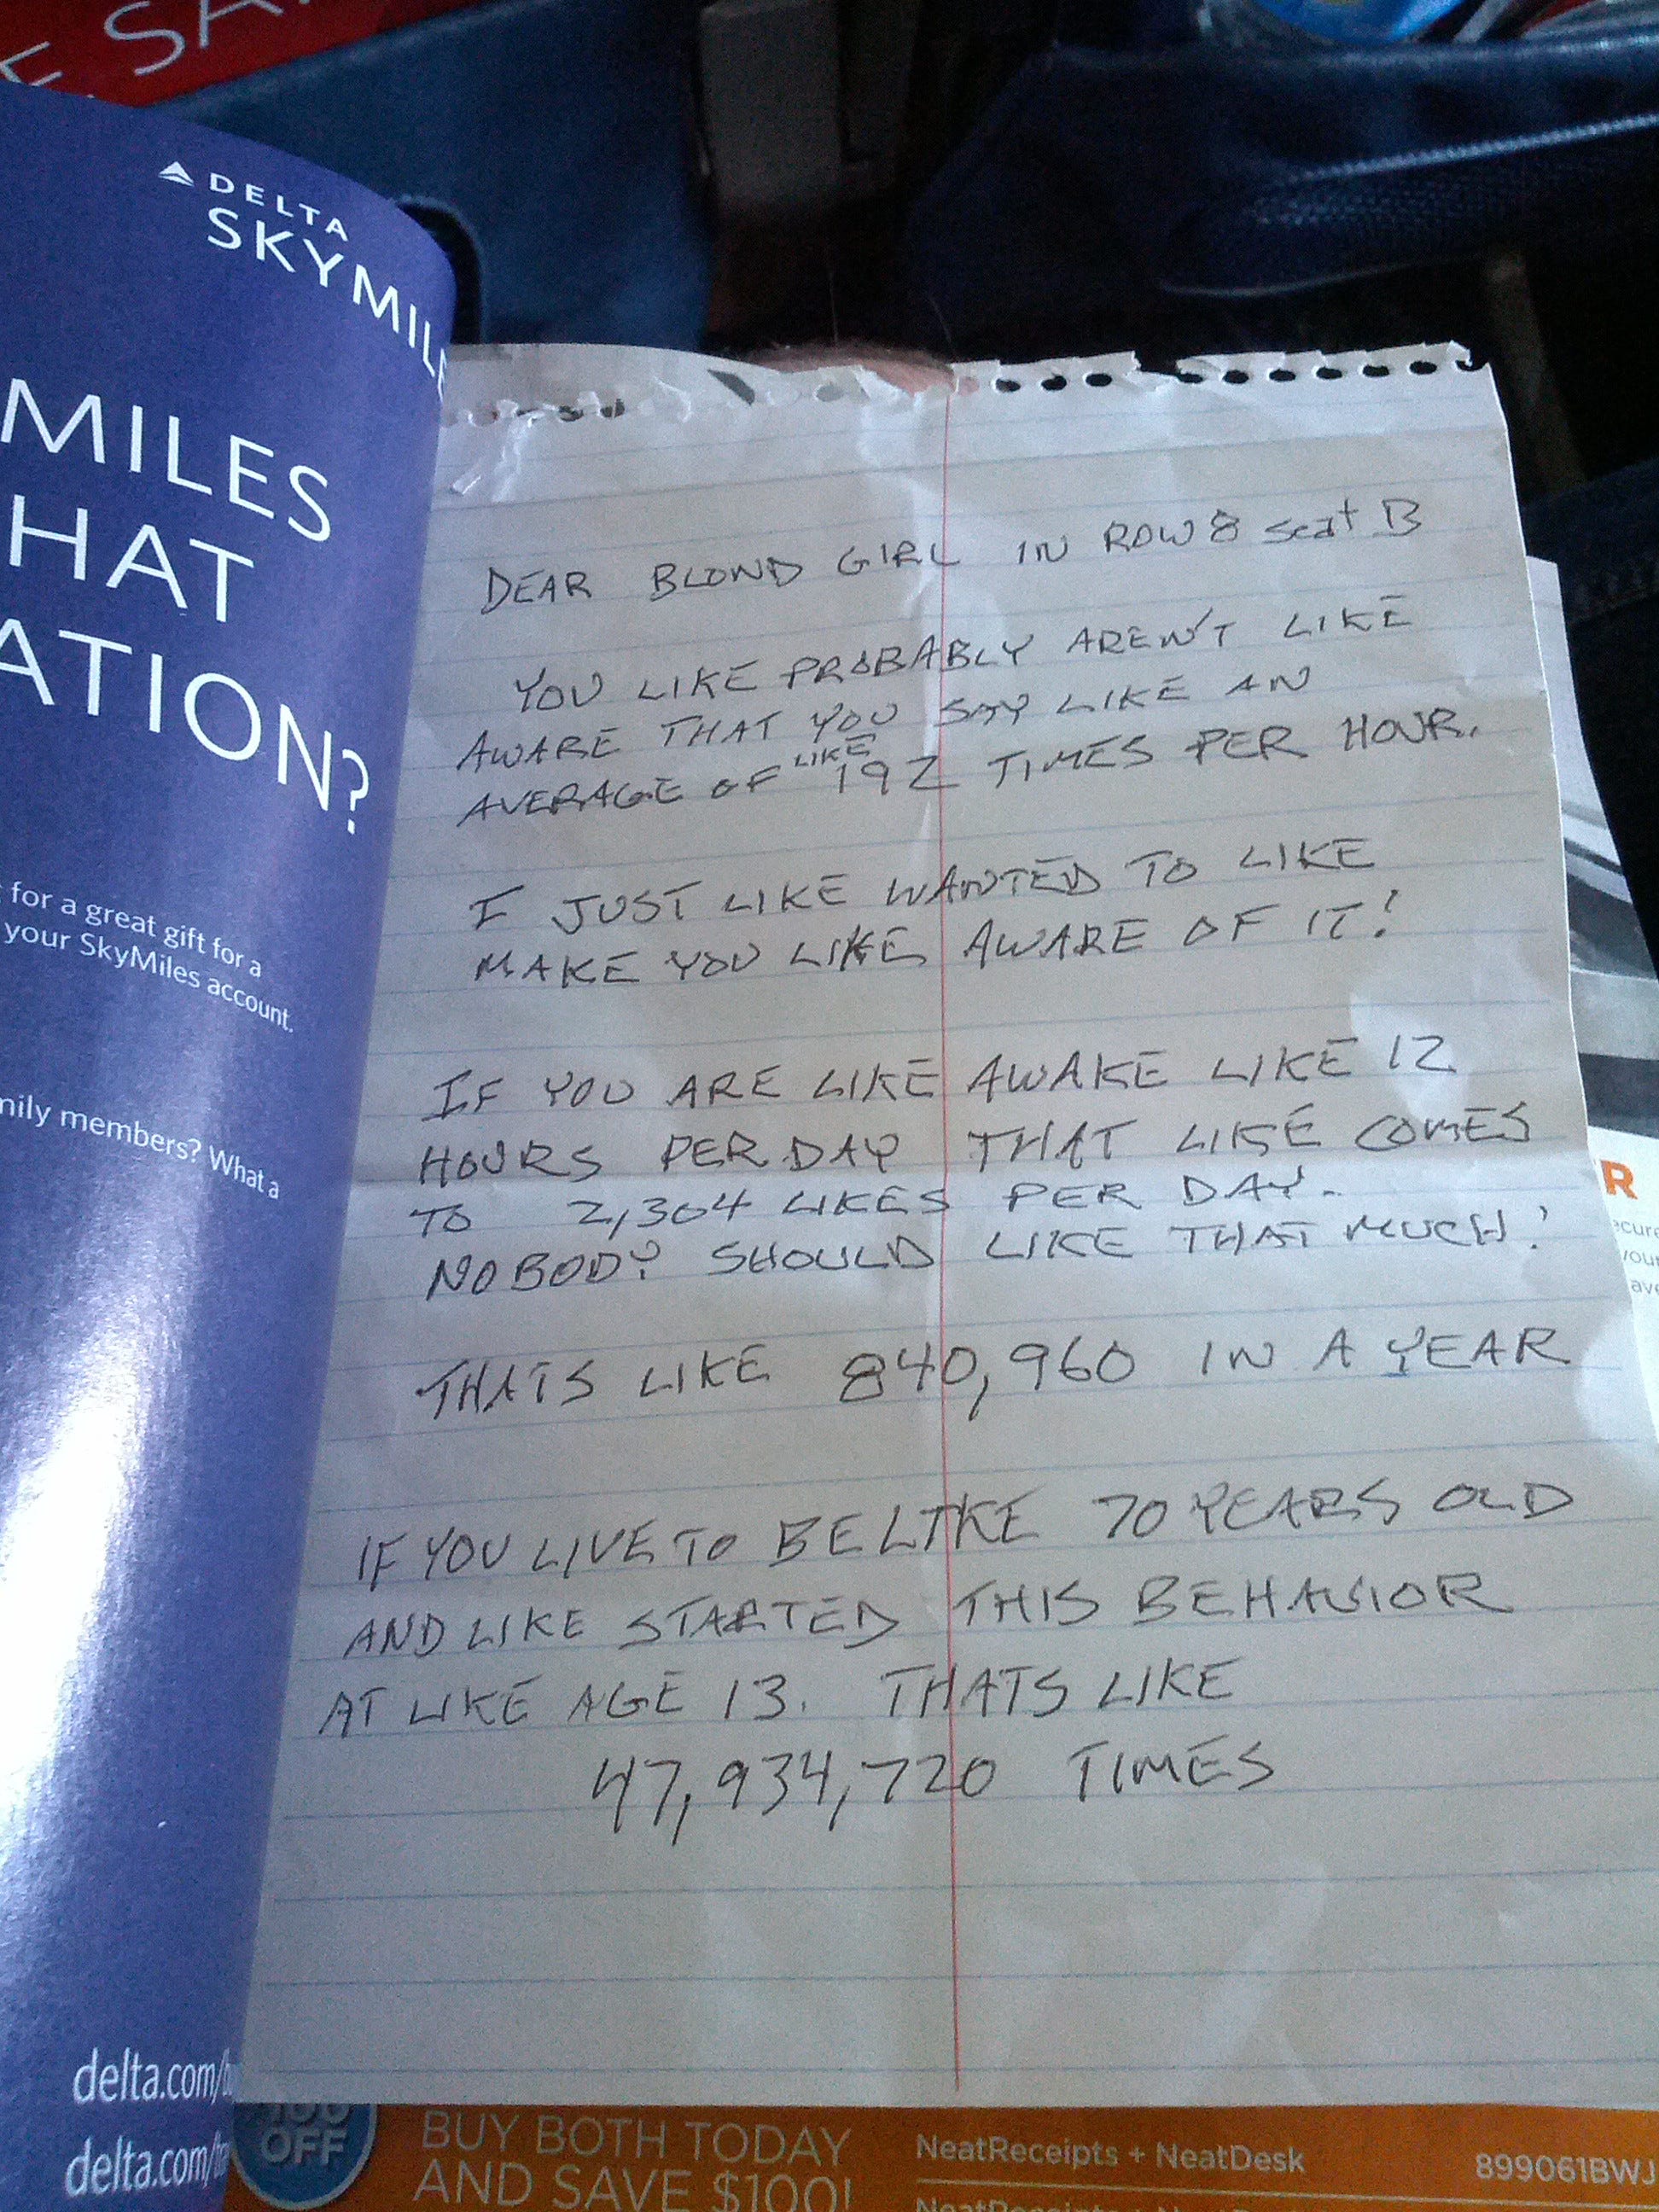 E SA
DELTA
SKYMILE
MILES
HAT
ATION?
for a great gift for a
your SkyMiles account.
mily members? What a
delta.com/
delta.com/
DEAR BLOND GIRL IN ROW 8 seat B
YOU LIKE PROBABLY AREN'T LIKE
AWARE THAT YOU SAY LIKE AN
AVERAGE OF LIKE 192 TIMES PER HOUR.
I JUST LIKE WANTED TO LIKE
MAKE YOU LIKE AWARE OF IT!
IF YOU ARE LIKE AWAKE LIKE 12
HOURS PER DAY THAT LIKE COMES
TO 2,304 LIKES PER DAY.
NOBODY SHOULD LIKE THAT MUCH!
THATS LIKE 840,960 IN A YEAR
IF YOU LIVE TO BE LIKE 70 YEARS OLD
AND LIKE STARTED THIS BEHAVIOR
AT LIKE AGE 13. THATS LIKE
47,934,720 TIMES
R
ecure
100
OFF
BUY BOTH TODAY
AND SAVE $100!
NeatReceipts + NeatDesk
899061BWJ